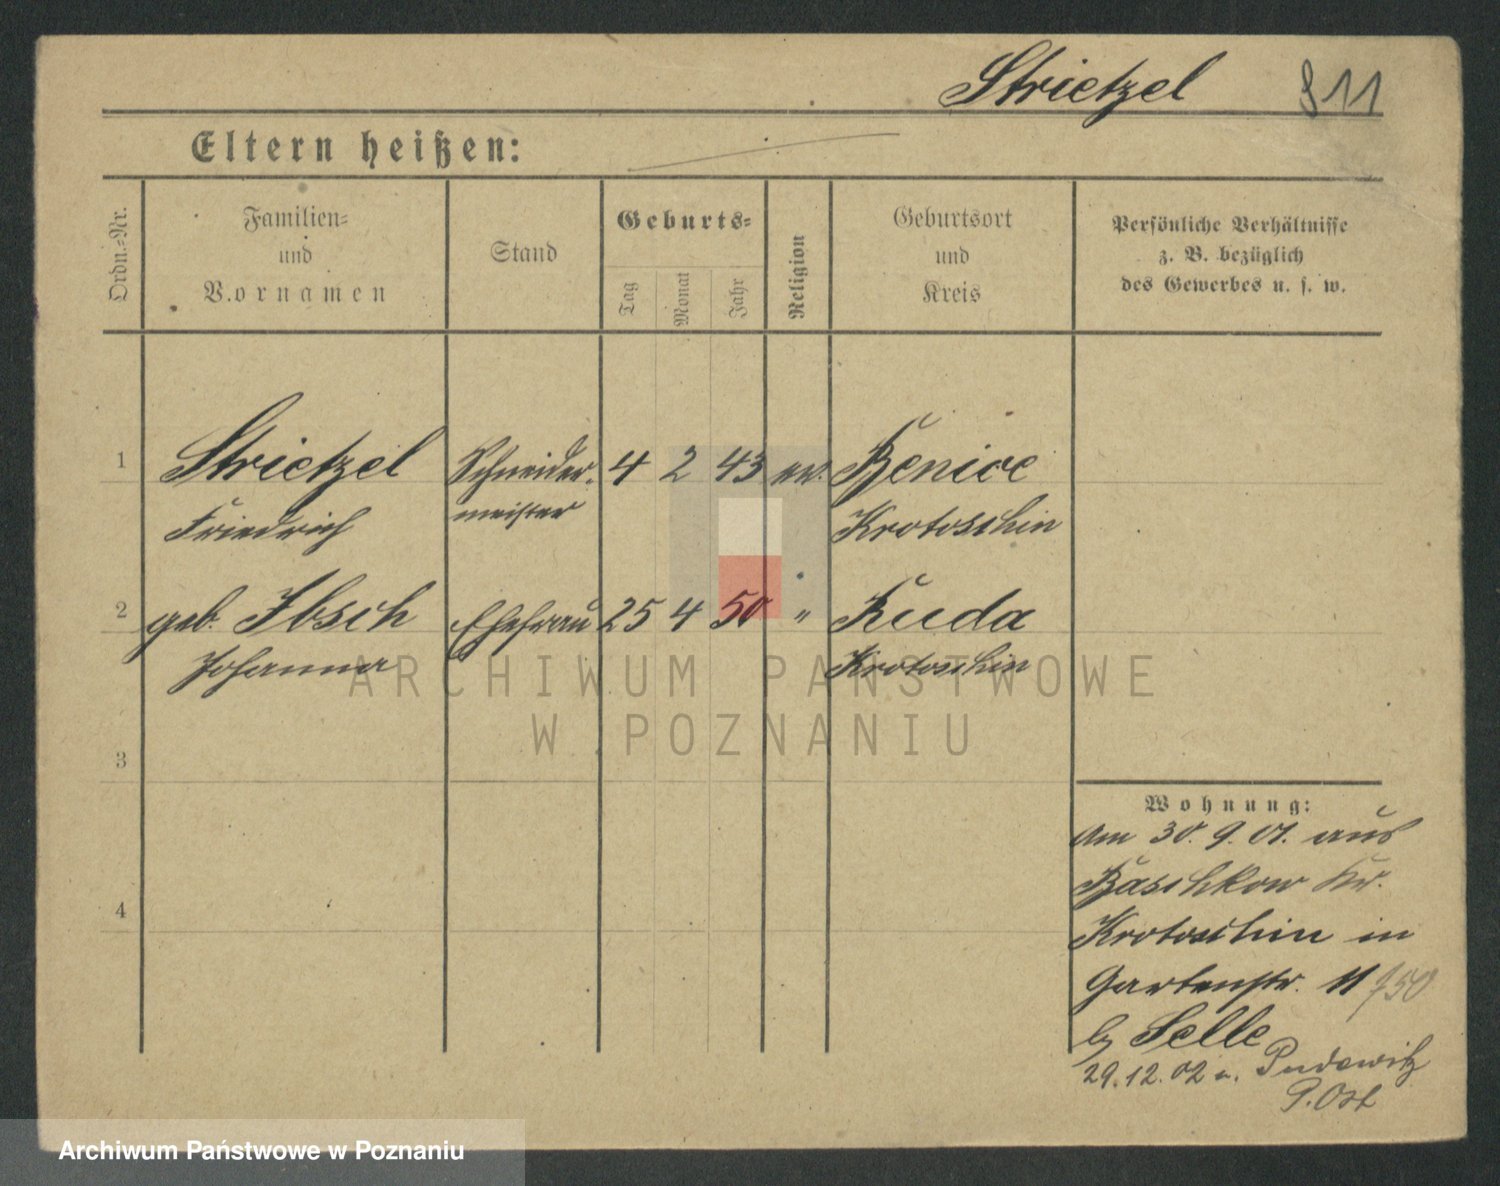 Strietzel 811
Eltern heißen:
Ordn.=Nr.
Familien=
und
Vornamen
Stand
Geburts=
Tag
Monat
Jahr
Religion
Geburtsort
und
Kreis
Persönliche Verhältnisse
z. B. bezüglich
des Gewerbes u. s. w.
1 Strietzel Schneider- 4 2 43 ev. Benice
Friedrich meister Krotoschin
2 geb. Ibsch Ehefrau 25 4 50 " Kuda
Johanna Krotoschin
3
4
Wohnung:
Am 30.9.01. aus
Baschkow Kr.
Krotoschin in
Gartenstr. 11 /50
b/ Selle
29.12.02 n. Pudewitz
P. Ost
ARCHIWUM PAŃSTWOWE
W POZNANIU
Archiwum Państwowe w Poznaniu